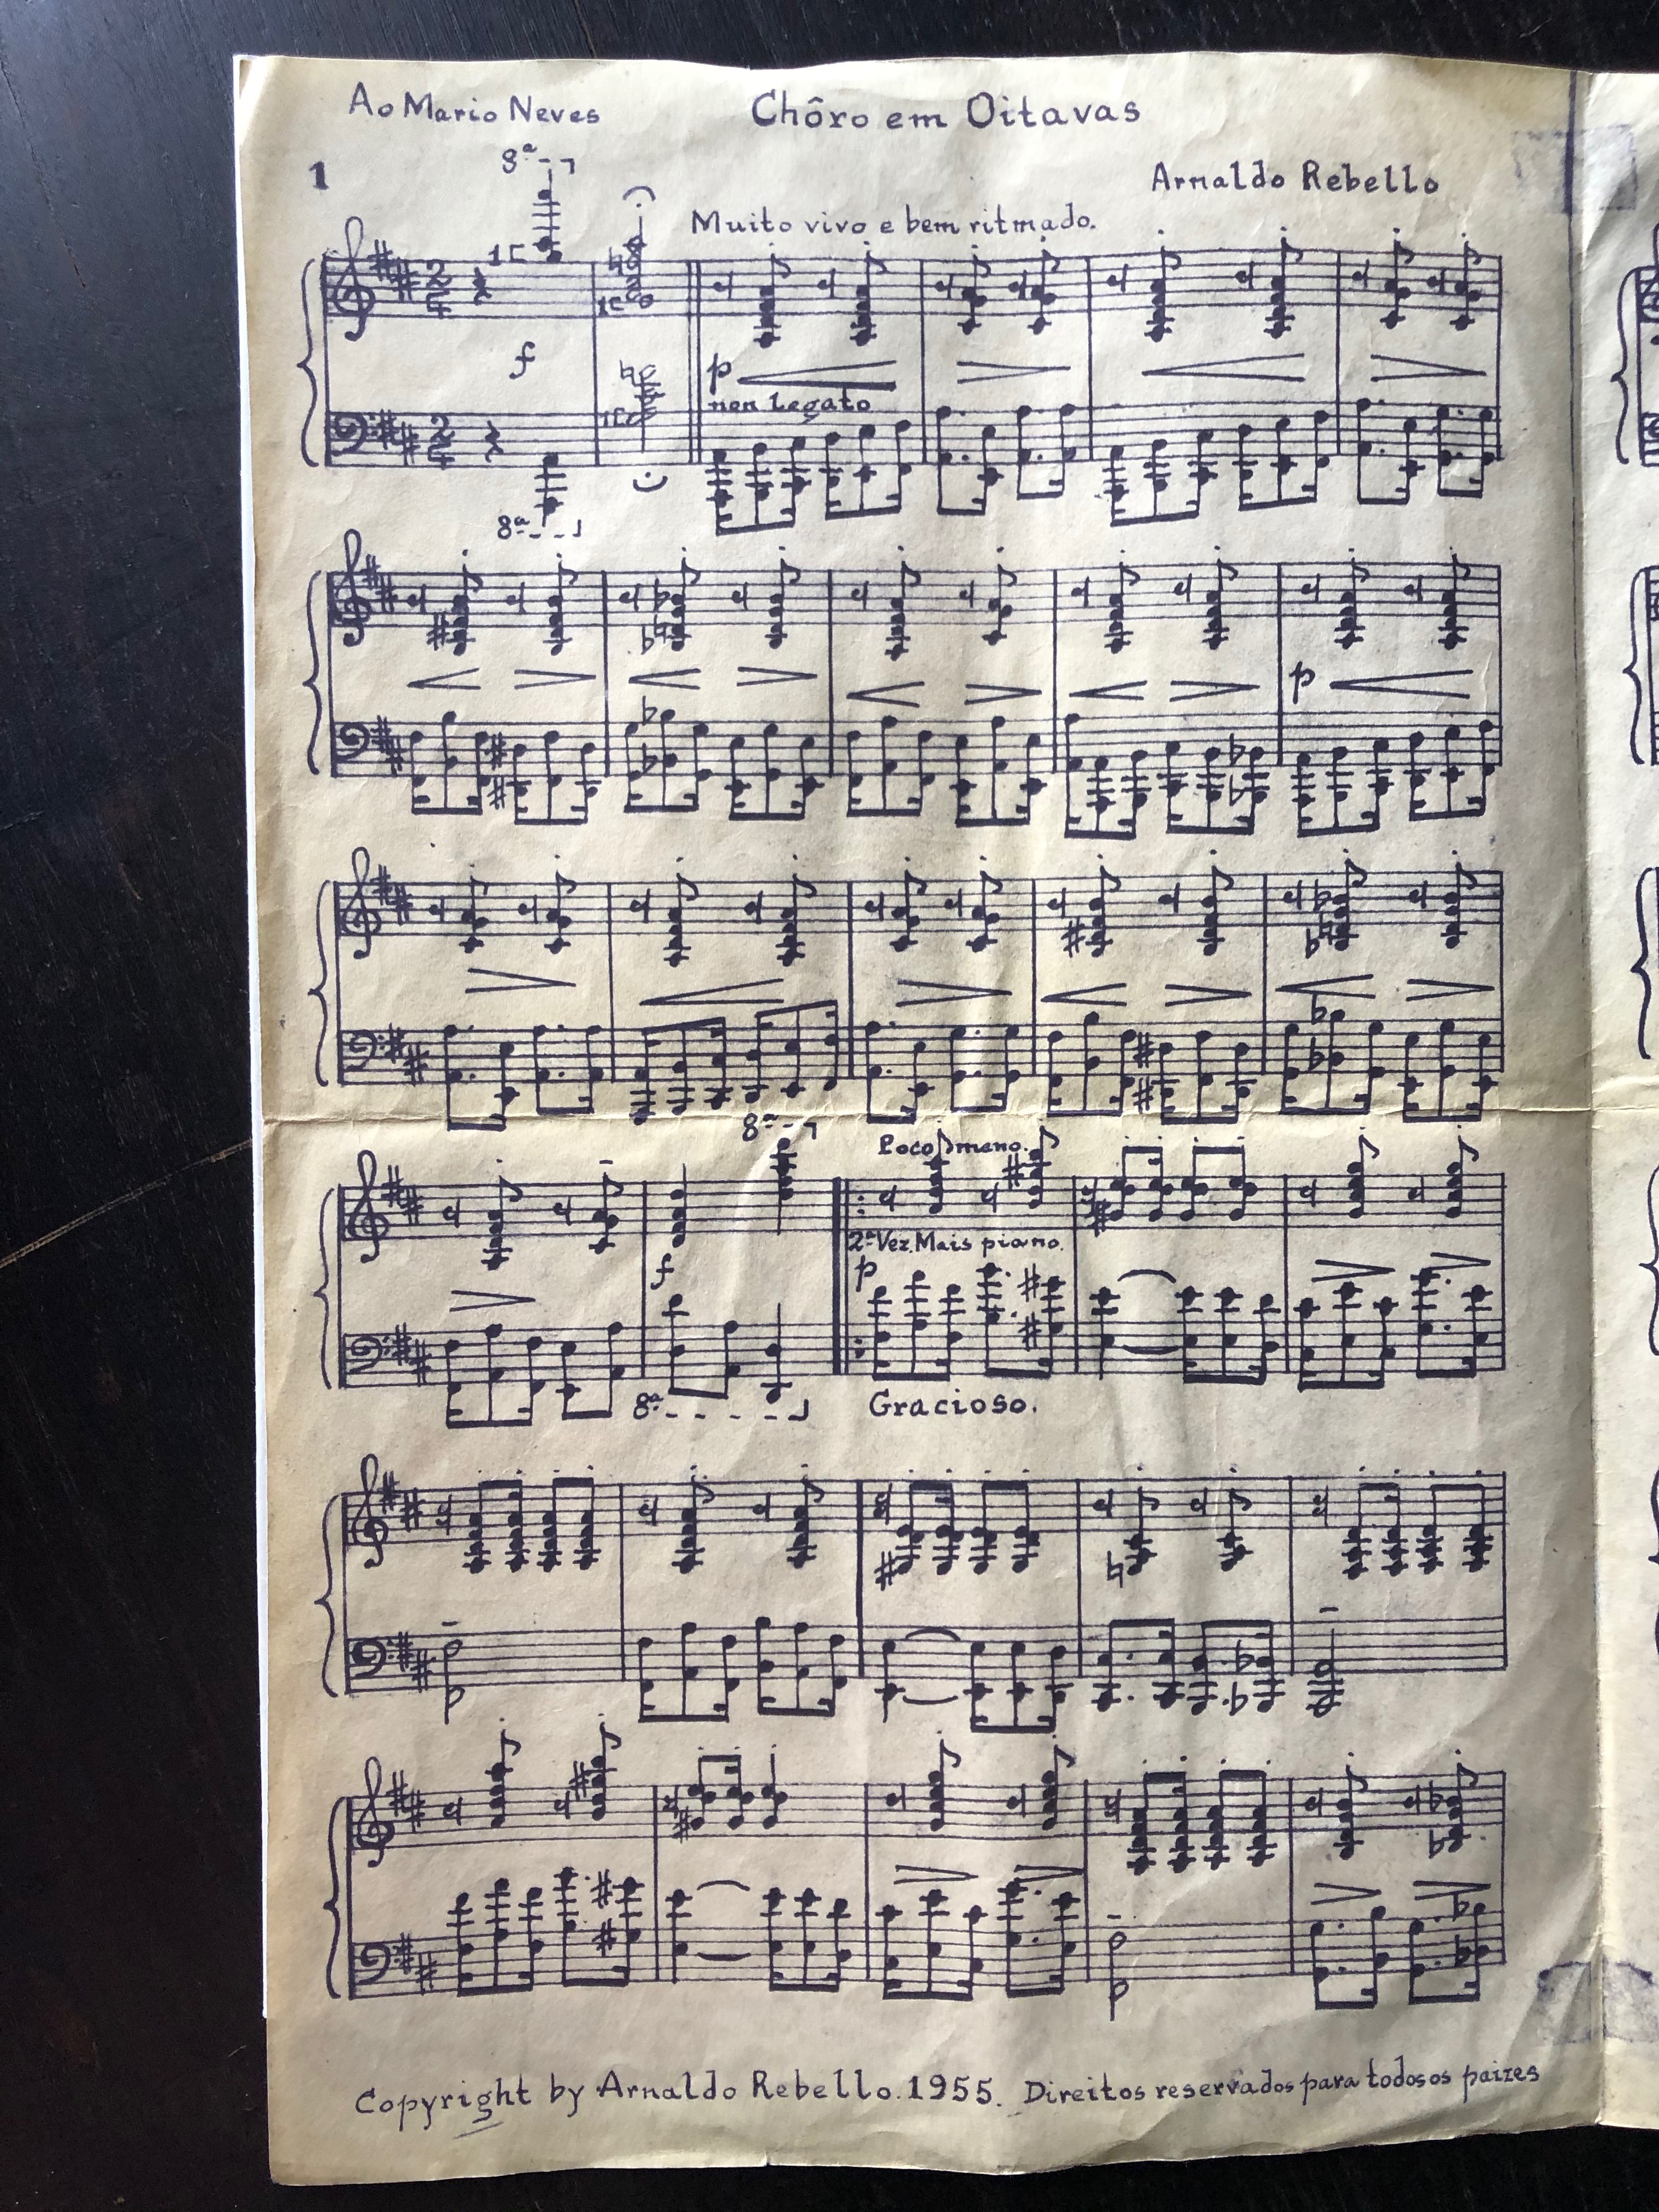 Ao Mario Neves
Chôro em Oitavas
1
Arnaldo Rebello
8ª
Muito vivo e bem ritmado.
2
4
f
p
non legato
2
4
8ª
p
8ª
Poco meno.
2ª Vez. Mais piano.
f
p
8ª
Gracioso.
Copyright by Arnaldo Rebello. 1955. Direitos reservados para todos os paizes